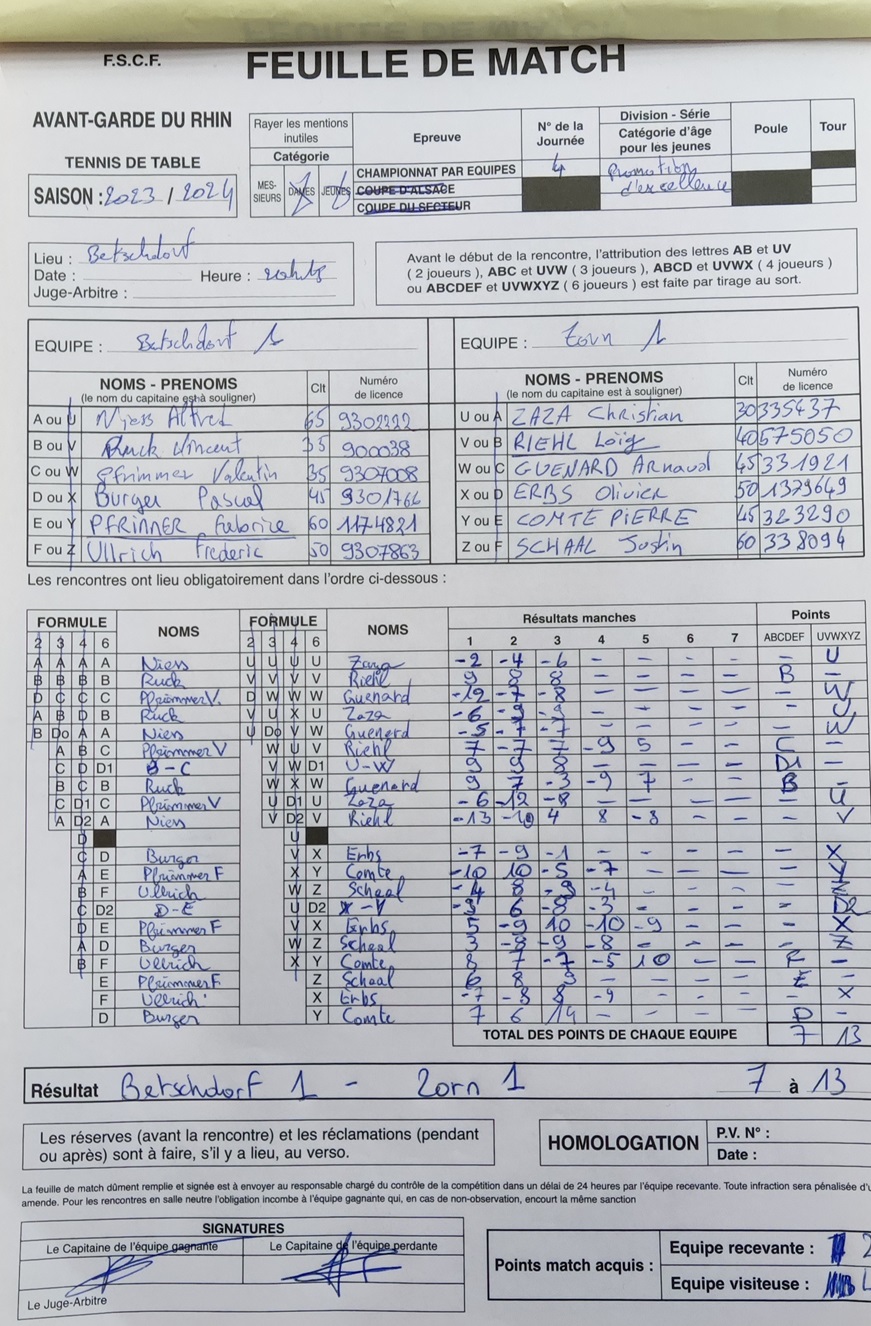 F.S.C.F.
FEUILLE DE MATCH
AVANT-GARDE DU RHIN
TENNIS DE TABLE
SAISON : 2023 / 2024
Rayer les mentions inutiles
Catégorie
MES-SIEURS DAMES JEUNES
Epreuve
CHAMPIONNAT PAR EQUIPES
COUPE D'ALSACE
COUPE DU SECTEUR
N° de la Journée
4
Division - Série
Catégorie d'âge pour les jeunes
Promotion d'excellence
Poule
Tour
Lieu : Betschdorf
Date : Heure : 20h15
Juge-Arbitre :
Avant le début de la rencontre, l'attribution des lettres AB et UV
( 2 joueurs ), ABC et UVW ( 3 joueurs ), ABCD et UVWX ( 4 joueurs )
ou ABCDEF et UVWXYZ ( 6 joueurs ) est faite par tirage au sort.
EQUIPE : Betschdorf 1
EQUIPE : Zorn 1
NOMS - PRENOMS Clt Numéro de licence
(le nom du capitaine est à souligner)
NOMS - PRENOMS Clt Numéro de licence
(le nom du capitaine est à souligner)
A ou U Alfred 65 9302222
U ou A ZAZA Christian 30 335437
B ou V Ruck Vincent 35 900038
V ou B RIEHL Loïg 40 575050
C ou W Pfrimmer Valentin 35 9307008
W ou C GUENARD Arnaud 45 331921
D ou X Burger Pascal 45 9301766
X ou D ERBS Olivier 50 1379649
E ou Y PFRIMMER Fabrice 60 1174821
Y ou E COMTE PIERRE 45 323290
F ou Z Ullrich Frederic 50 9307863
Z ou F SCHAAL Justin 60 338094
Les rencontres ont lieu obligatoirement dans l'ordre ci-dessous :
FORMULE NOMS FORMULE NOMS Résultats manches Points
2 3 4 6 2 3 4 6 1 2 3 4 5 6 7 ABCDEF UVWXYZ
A A A A Niess U U U U Zaza -2 -4 -6 - - - - - U
B B B B Ruck V V V V Riehl 9 8 8 - - - - B -
D C C C Pfrimmer V. D W W W Guenard -12 -7 -8 - - - - - W
A B D B Ruck V U X U Zaza -6 -9 -9 - - - - - U
B Do A A Niess U Do V W Guenard -5 -7 -7 - - - - - W
A B C Pfrimmer V W U V Riehl 7 -7 7 -9 5 - - C -
C D D1 B-C V W D1 U-W 9 9 8 - - - - D1 -
B C B Ruck W X W Guenard 9 7 -3 -9 7 - - B -
C D1 C Pfrimmer V U D1 U Zaza -6 -12 -8 - - - - - U
A D2 A Niess V D2 V Riehl -13 -10 4 8 -8 - - - V
D U
C D Burger V X Erbs -7 -9 -1 - - - - - X
A E Pfrimmer F X Y Comte -10 10 -5 -7 - - - - Y
B F Ullrich W Z Schaal -4 8 -9 -4 - - - - Z
C D2 D-E U D2 X-Y 6 -3 - - - - D2
D E Pfrimmer F V X Erbs 5 -9 10 -10 -9 - - - X
A D Burger W Z Schaal 3 -8 -9 -8 - - - - Z
B F Ullrich X Y Comte 8 7 -7 -5 10 - - F -
E Pfrimmer F Z Schaal 6 8 9 - - - - E -
F Ullrich X Erbs -7 -8 8 -9 - - - - X
D Burger Y Comte 7 6 14 - - - - D -
TOTAL DES POINTS DE CHAQUE EQUIPE 7 13
Résultat Betschdorf 1 - Zorn 1 7 à 13
Les réserves (avant la rencontre) et les réclamations (pendant
ou après) sont à faire, s'il y a lieu, au verso.
HOMOLOGATION
P.V. N° :
Date :
La feuille de match dûment remplie et signée est à envoyer au responsable chargé du contrôle de la compétition dans un délai de 24 heures par l'équipe recevante. Toute infraction sera pénalisée
amende. Pour les rencontres en salle neutre l'obligation incombe à l'équipe gagnante qui, en cas de non-observation, encourt la même sanction
SIGNATURES
Le Capitaine de l'équipe gagnante Le Capitaine de l'équipe perdante
Le Juge-Arbitre
Points match acquis :
Equipe recevante :
Equipe visiteuse :